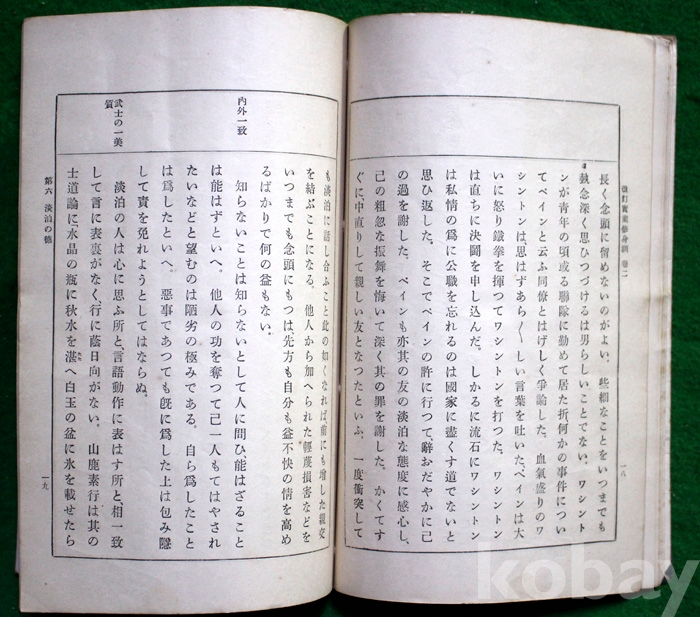 修身訓 卷二
一八
長く念頭に留めないのがよい。些細なことをいつまでも
執念深く思ひつづけるは男らしいことでない。ワシント
ンが青年の頃或る聯隊に勤めて居た折何かの事件につい
てペインと云ふ同僚とはげしく爭論した。血氣盛りのワ
シントンは、思はずあら〱しい言葉を吐いた。ペインは大
いに怒り鐵拳を揮つてワシントンを打つた。ワシントン
は直ちに決鬪を申し込んだ。しかるに流石にワシントン
は私情の爲に公職を忘れるのは國家に盡くす道でないと
思ひ返した。そこでペインの許に行つて、辭おだやかに己
の過を謝した。ペインも亦其の友の淡泊な態度に感心し、
己の粗忽な振舞を悔いて深く其の罪を謝した。かくてす
ぐに中直りして親しい友となつたといふ。一度衝突して
も淡泊に話し合ふこと此の如くなれば前にも増した親交
を結ぶことになる。他人から加へられた輕蔑損害などを
いつまでも念頭にもつは、先方も自分も益不快の情を高め
るばかりで何の益もない。
內外一致
知らないことは知らないとして人に問ひ、能はざること
は能はずといへ。他人の功を奪つて己一人もてはやされ
たいなどと望むのは陋劣の極みである。自ら爲したこと
は爲したといへ。惡事であつても既に爲した上は包み隱
して責を免れようとしてはならぬ。
武士の一美
質
淡泊の人は心に思ふ所と、言語動作に表はす所と、相一致
して言に表裏がなく、行に蔭日向がない。山鹿素行は其の
士道論に、水晶の瓶に秋水を湛へ白玉の盆に氷を載せたら
第六 淡泊の德
一九
kobay